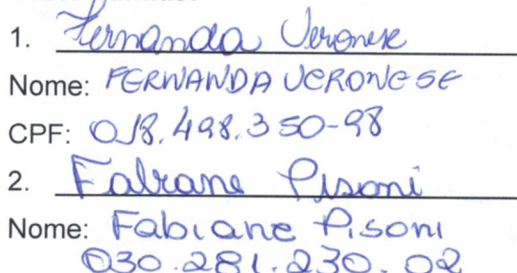 1. Fernanda Veronese
Nome: FERNANDA VERONESE
CPF: 018.498.350-98
2. Fabiane Pisoni
Nome: Fabiane Pisoni
030.281.230.02